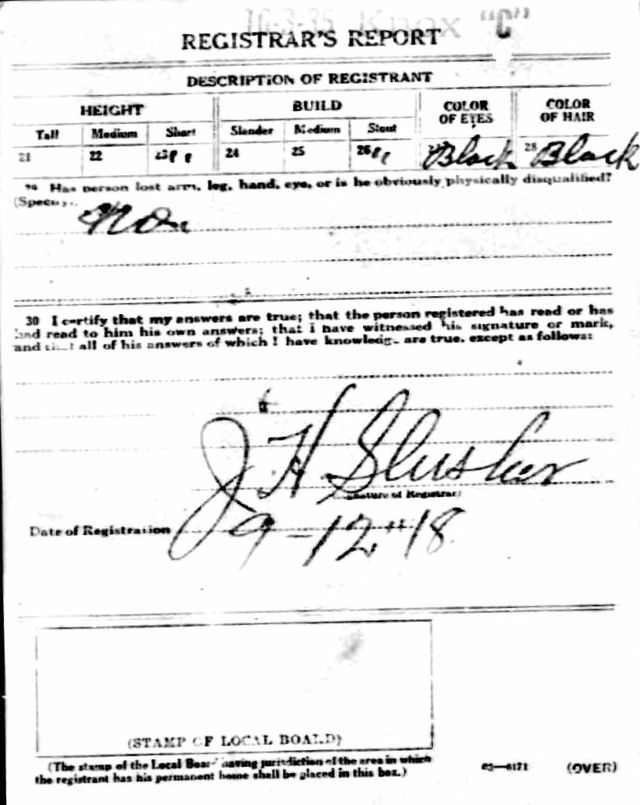 16-3-35 Knox "C"
REGISTRAR'S REPORT
DESCRIPTION OF REGISTRANT
HEIGHT BUILD COLOR OF EYES COLOR OF HAIR
Tall Medium Short Slender Medium Stout
21 22 23 24 25 26 Black 28 Black
29 Has person lost arm, leg, hand, eye, or is he obviously physically disqualified?
(Specify).
No.
30 I certify that my answers are true; that the person registered has read or has
had read to him his own answers; that I have witnessed his signature or mark,
and that all of his answers of which I have knowledge are true, except as follows:
J H Slusher
(Signature of Registrar)
Date of Registration 9-12-18
(STAMP OF LOCAL BOARD)
(The stamp of the Local Board having jurisdiction of the area in which
the registrant has his permanent home shall be placed in this box.)
03—6171 (OVER)